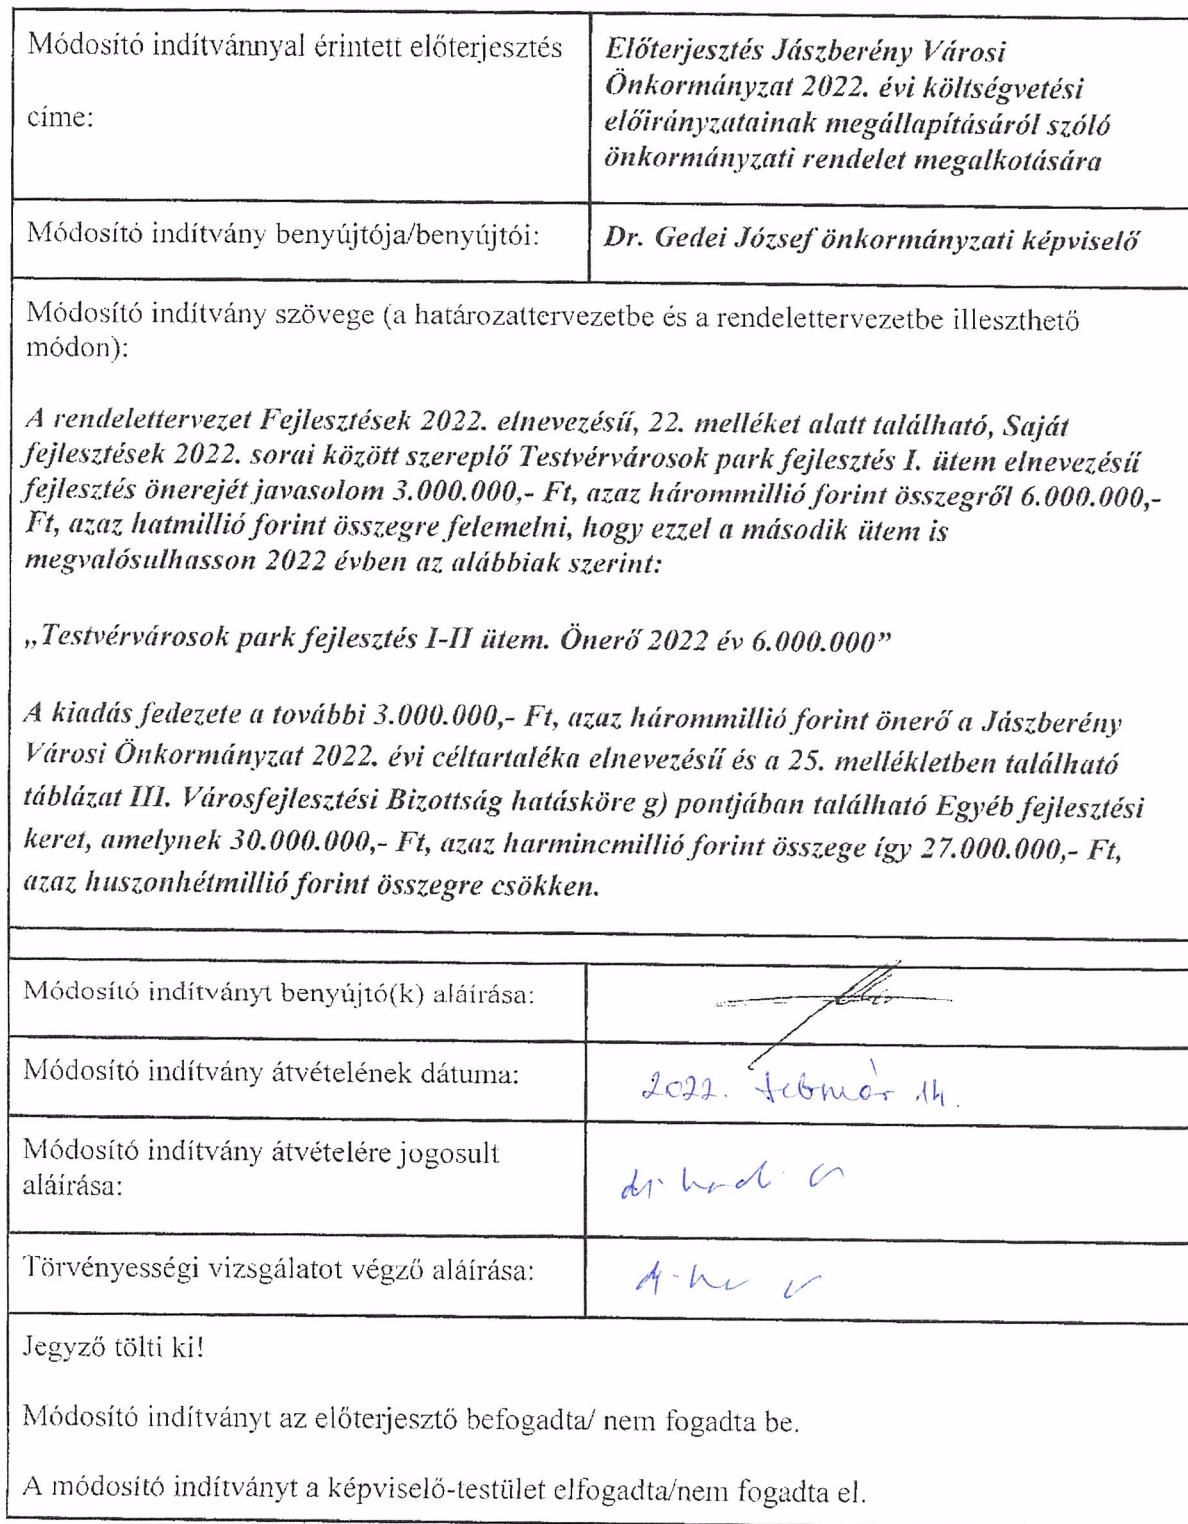 Módosító indítvánnyal érintett előterjesztés
címe:
Előterjesztés Jászberény Városi
Önkormányzat 2022. évi költségvetési
előirányzatainak megállapításáról szóló
önkormányzati rendelet megalkotására
Módosító indítvány benyújtója/benyújtói:
Dr. Gedei József önkormányzati képviselő
Módosító indítvány szövege (a határozattervezetbe és a rendelettervezetbe illeszthető
módon):
A rendelettervezet Fejlesztések 2022. elnevezésű, 22. melléket alatt található, Saját
fejlesztések 2022. sorai között szereplő Testvérvárosok park fejlesztés I. ütem elnevezésű
fejlesztés önerejét javasolom 3.000.000,- Ft, azaz hárommillió forint összegről 6.000.000,-
Ft, azaz hatmillió forint összegre felemelni, hogy ezzel a második ütem is
megvalósulhasson 2022 évben az alábbiak szerint:
„Testvérvárosok park fejlesztés I-II ütem. Önerő 2022 év 6.000.000”
A kiadás fedezete a további 3.000.000,- Ft, azaz hárommillió forint önerő a Jászberény
Városi Önkormányzat 2022. évi céltartaléka elnevezésű és a 25. mellékletben található
táblázat III. Városfejlesztési Bizottság hatásköre g) pontjában található Egyéb fejlesztési
keret, amelynek 30.000.000,- Ft, azaz harmincmillió forint összege így 27.000.000,- Ft,
azaz huszonhétmillió forint összegre csökken.
Módosító indítványt benyújtó(k) aláírása:
Módosító indítvány átvételének dátuma:
2022. február 14.
Módosító indítvány átvételére jogosult
aláírása:
Törvényességi vizsgálatot végző aláírása:
Jegyző tölti ki!
Módosító indítványt az előterjesztő befogadta/ nem fogadta be.
A módosító indítványt a képviselő-testület elfogadta/nem fogadta el.